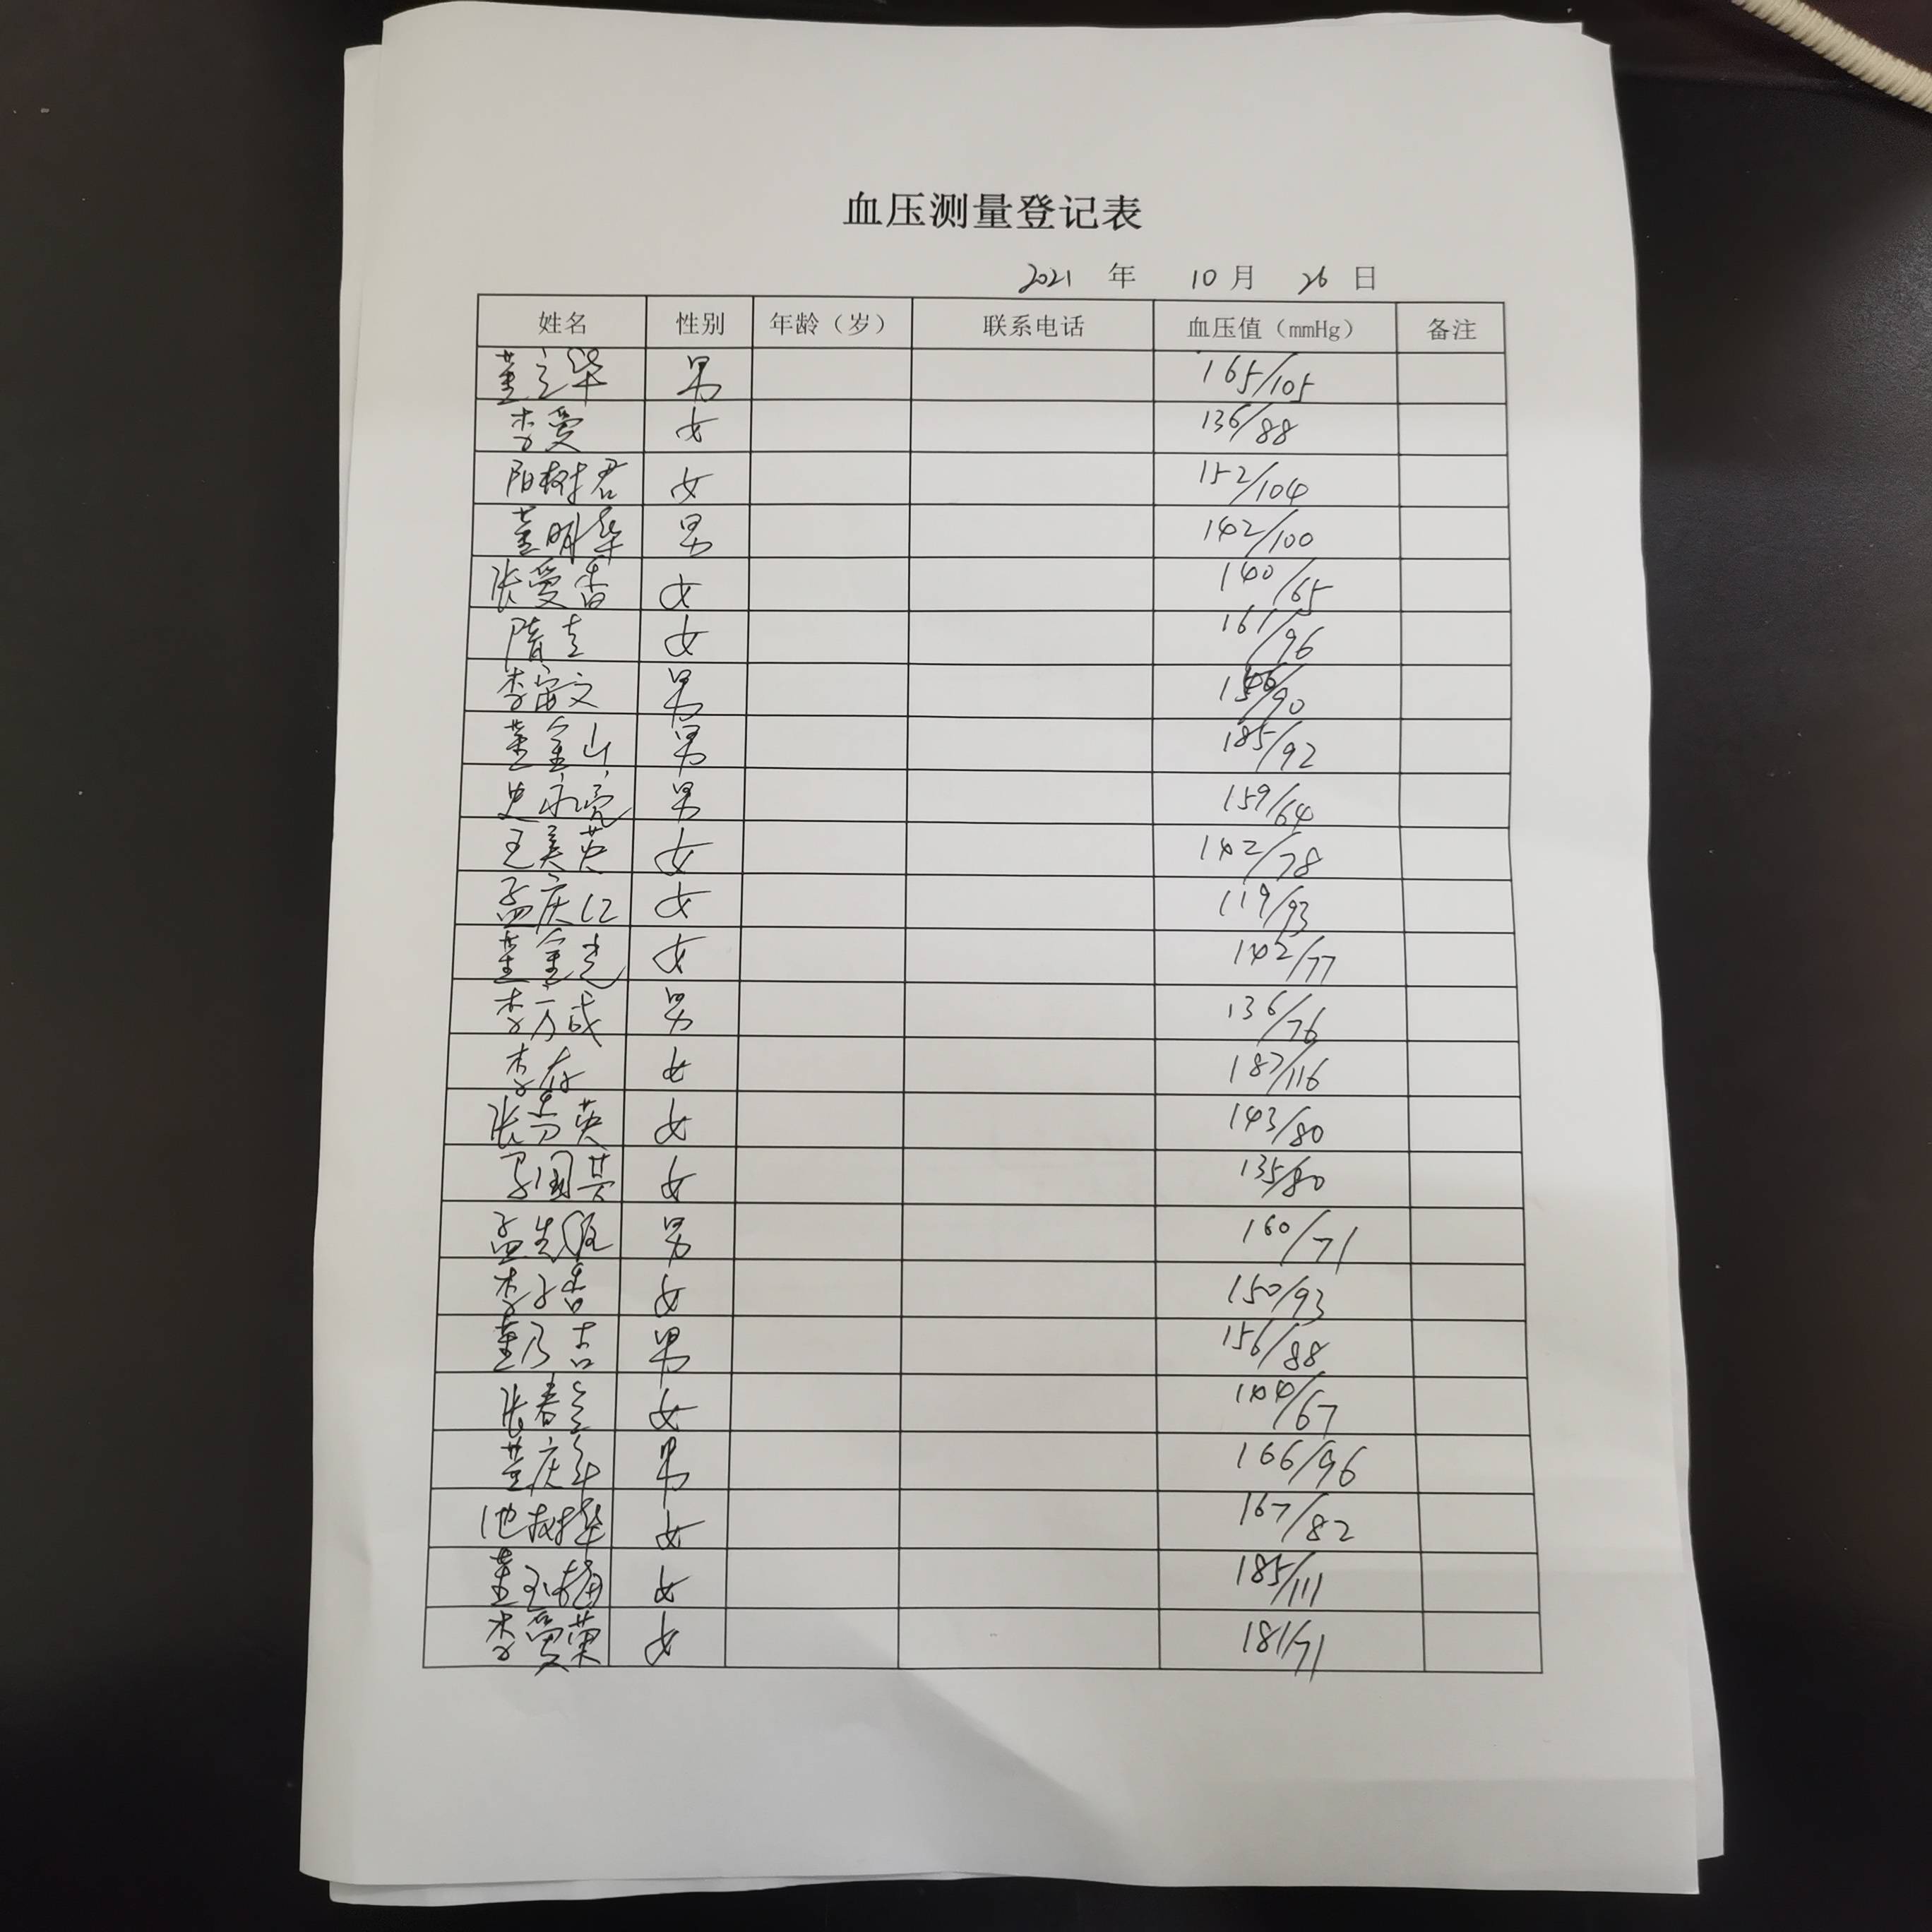 血压测量登记表
2021 年 10 月 26 日
姓名 性别 年龄（岁） 联系电话 血压值（mmHg） 备注
董立华 男 165/105
李爱 女 136/88
阳树君 女 152/104
董明华 男 142/100
张爱香 女 140/65
隋 女 161/96
李宙文 男 90
董金山 男 185/92
史永亮 男 159/64
王美英 女 142/78
孟庆红 女 119/93
董金光 女 142/77
李方成 男 136/76
李存 女 187/116
张 英 女 143/80
国英 女 135/80
孟先 男 160/71
李子香 女 150/93
董乃吉 男 156/88
张春兰 女 144/67
董庆年 男 166/96
池树华 女 167/82
董玉梅 女 185/111
李爱菊 女 181/71